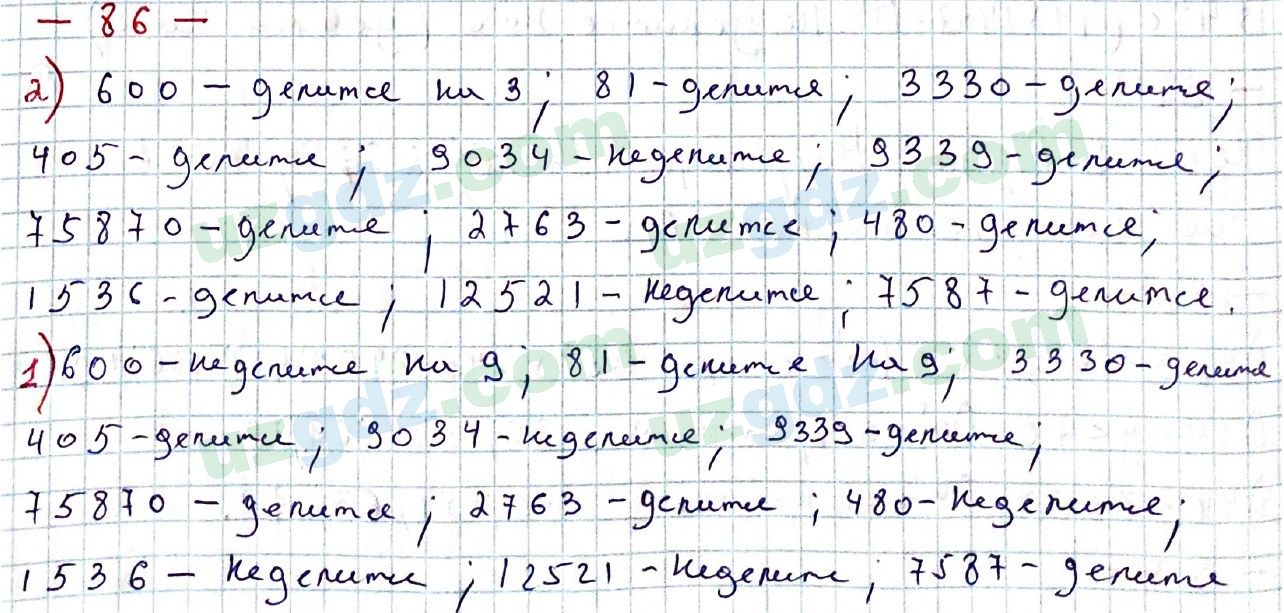 — 86 —
2) 600 — делится на 3; 81 - делится; 3330 - делится;
405 - делится; 9034 - неделится; 9339 - делится;
75870 - делится; 2763 - делится; 480 - делится;
1536 - делится; 12521 - неделится; 7587 - делится.
1) 600 - неделится на 9; 81 - делится на 9; 3330 - делится
405 - делится; 9034 - неделится; 9339 - делится;
75870 — делится; 2763 - делится; 480 - неделится;
1536 — неделится; 12521 - неделится; 7587 - делится
uzgdz.com
uzgdz.com
uzgdz.com
uzgdz.com